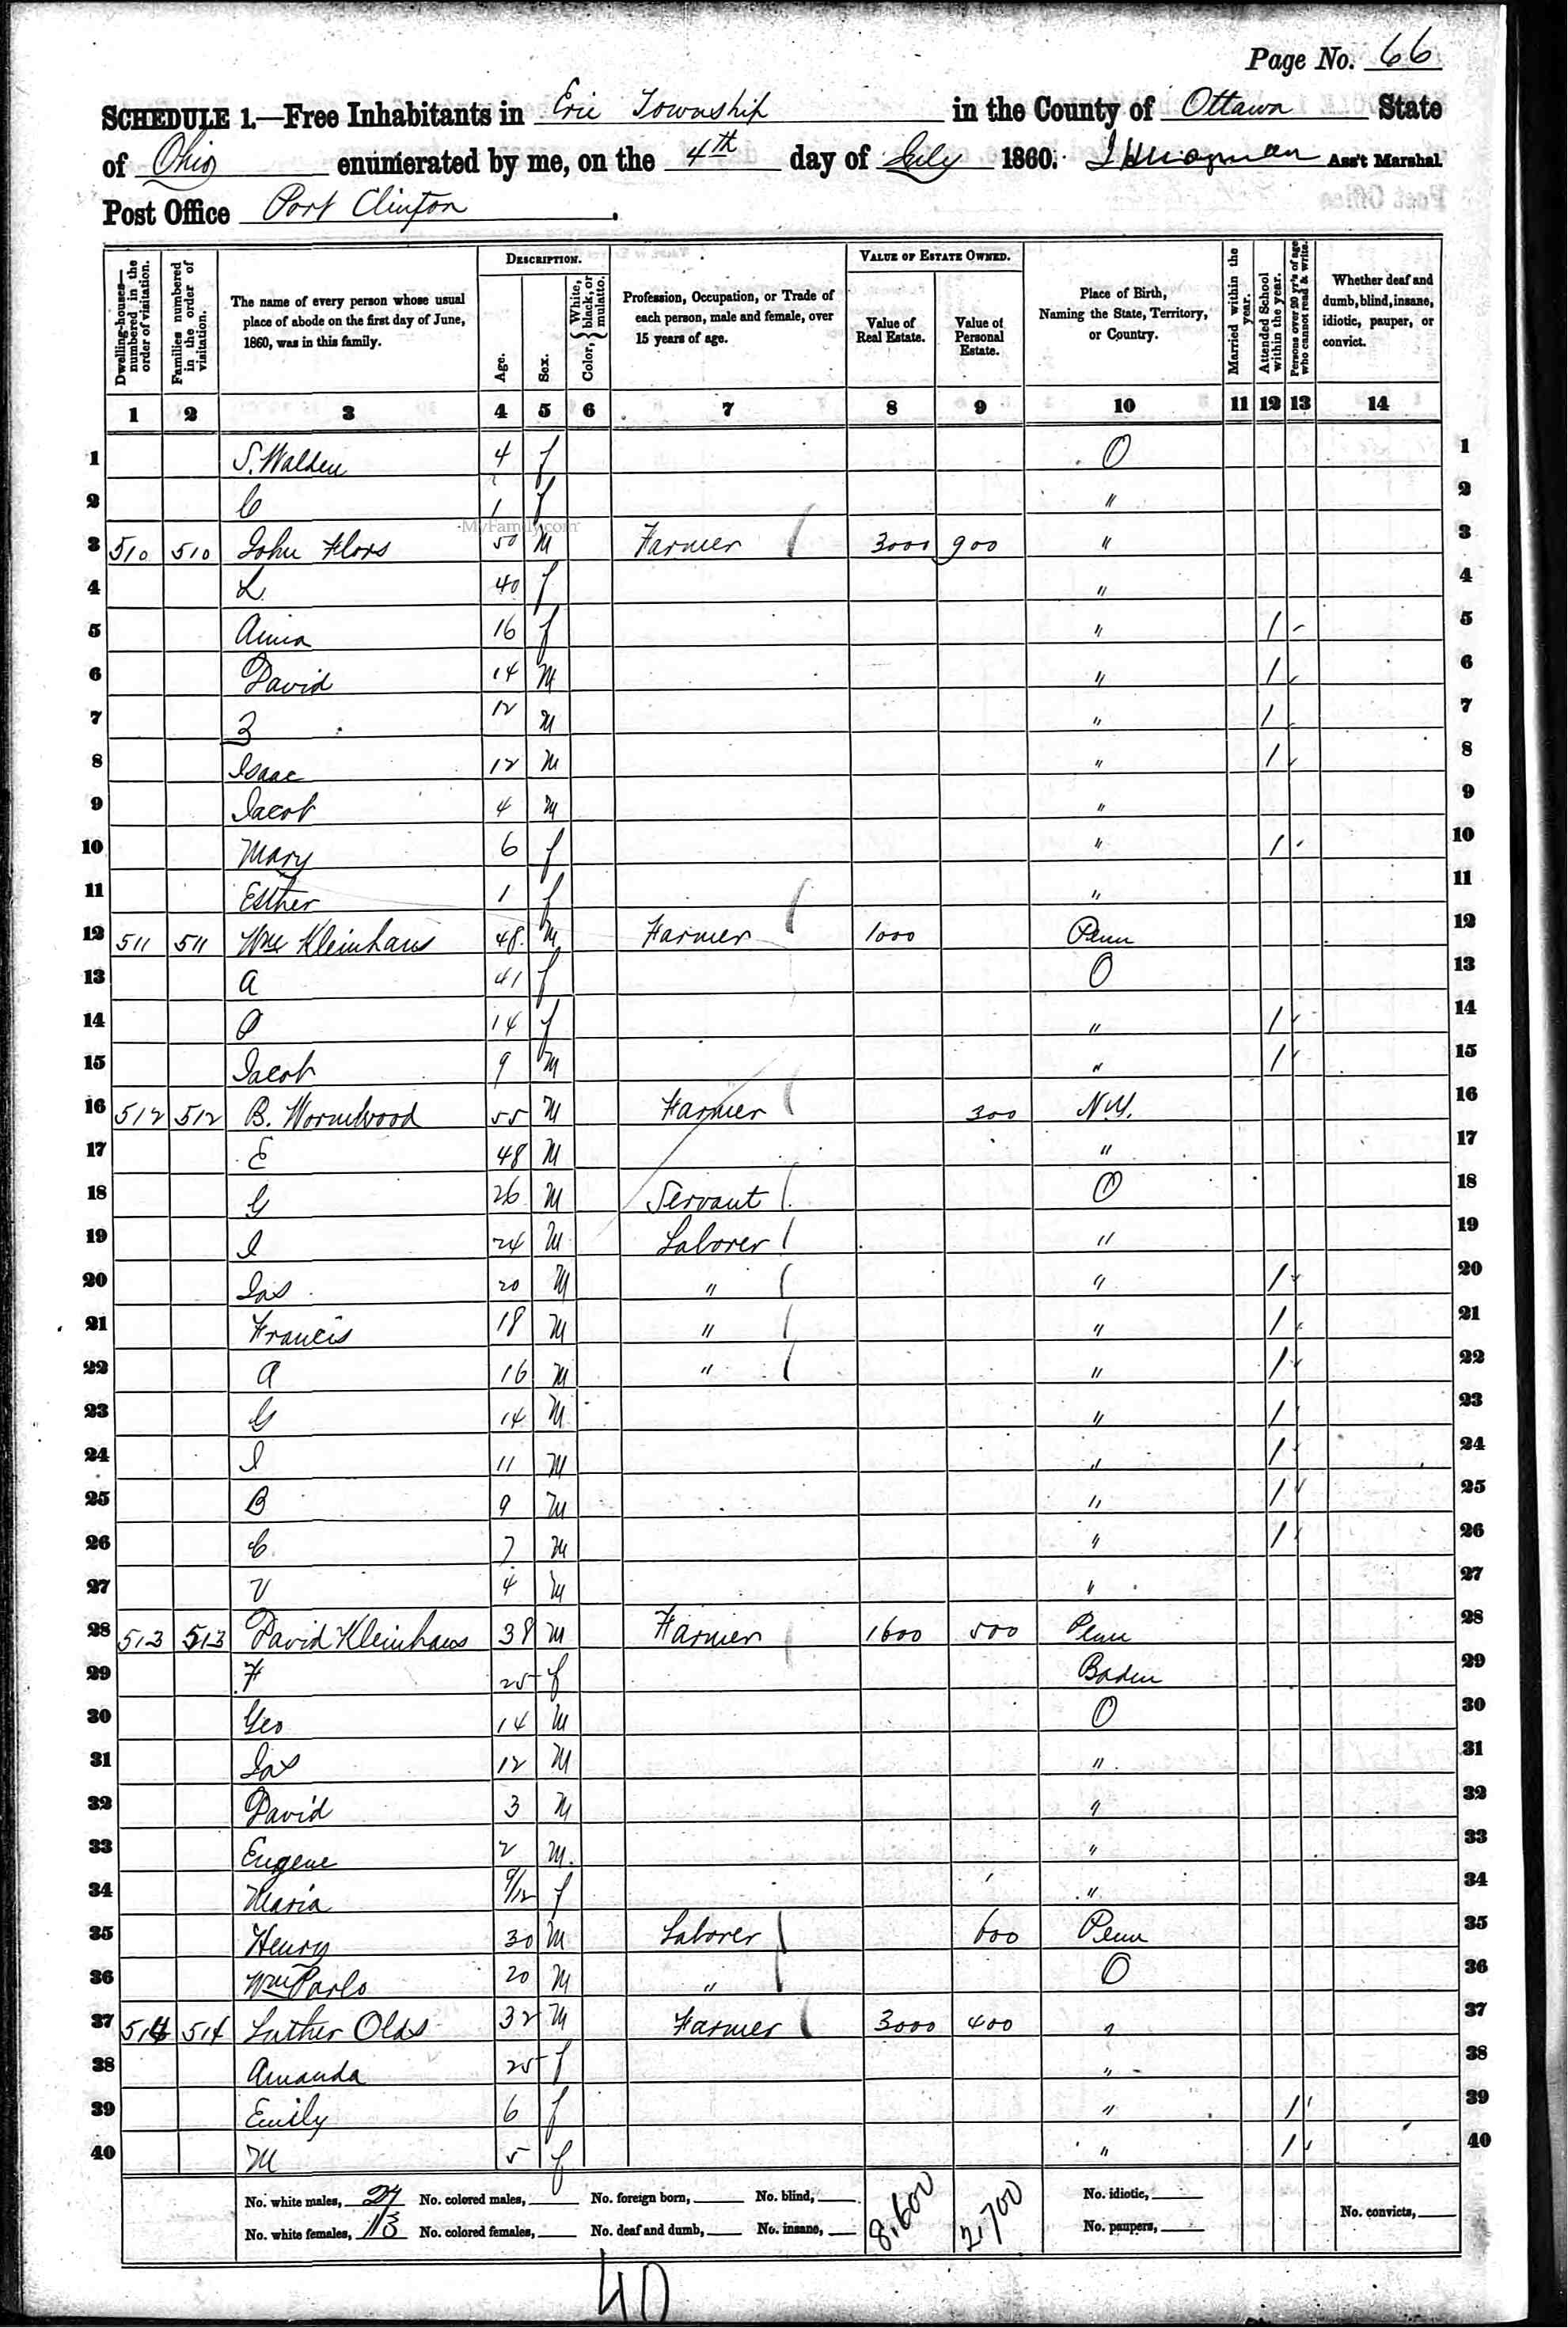 Page No. 66
SCHEDULE 1.—Free Inhabitants in Erie Township in the County of Ottawa State
of Ohio enumerated by me, on the 4th day of July 1860. Ass't Marshal.
Post Office Port Clinton.
Dwelling-houses—numbered in the order of visitation.
Families numbered in the order of visitation.
The name of every person whose usual place of abode on the first day of June, 1860, was in this family.
DESCRIPTION.
Age.
Sex.
Color, { White, black, or mulatto.
Profession, Occupation, or Trade of each person, male and female, over 15 years of age.
VALUE OF ESTATE OWNED.
Value of Real Estate.
Value of Personal Estate.
Place of Birth, Naming the State, Territory, or Country.
Married within the year.
Attended School within the year.
Persons over 20 y'rs of age who cannot read & write.
Whether deaf and dumb, blind, insane, idiotic, pauper, or convict.
1 2 3 4 5 6 7 8 9 10 11 12 13 14
1 S. Walden 4 f O 1
2 C 1 f " 2
MyFamily.com
3 510 510 John Flors 50 M Farmer / 3000 900 " 3
4 L 40 f " 4
5 Anna 16 f " / 5
6 David 14 M " / 6
7 3 12 M " / 7
8 Isaac 12 M " / 8
9 Jacob 4 M " 9
10 Mary 6 f " / 10
11 Esther 1 f " 11
12 511 511 Wm Kleinhans 48 M Farmer / 1000 Penn 12
13 A 41 f O 13
14 O 14 f " / 14
15 Jacob 9 M " / 15
16 512 512 B. Wormwood 55 M Farmer / 300 N.Y. 16
17 E 48 M " 17
18 G 26 M Servant / O 18
19 I 24 M Laborer / " 19
20 Jas 20 M " / " / 20
21 Francis 18 M " / " / 21
22 A 16 M " / " / 22
23 G 14 M " / 23
24 I 11 M " / 24
25 B 9 M " / 25
26 C 7 M " / 26
27 V 4 M " 27
28 513 513 David Kleinhans 38 M Farmer / 1600 500 Penn 28
29 F 25 f Baden 29
30 Geo 14 M O 30
31 Jas 12 M " 31
32 David 3 M " 32
33 Eugene 2 M " 33
34 Maria 9/12 f " 34
35 Henry 30 M Laborer / 600 Penn 35
36 Wm Parlo 20 M " / O 36
37 514 514 Luther Olds 32 M Farmer / 3000 400 " 37
38 Amanda 25 f " 38
39 Emily 6 f " / 39
40 M 5 f " / 40
No. white males, 27 No. colored males, No. foreign born, No. blind, 8,600 2,700 No. idiotic,
No. white females, 13 No. colored females, No. deaf and dumb, No. insane, No. paupers, No. convicts,
40